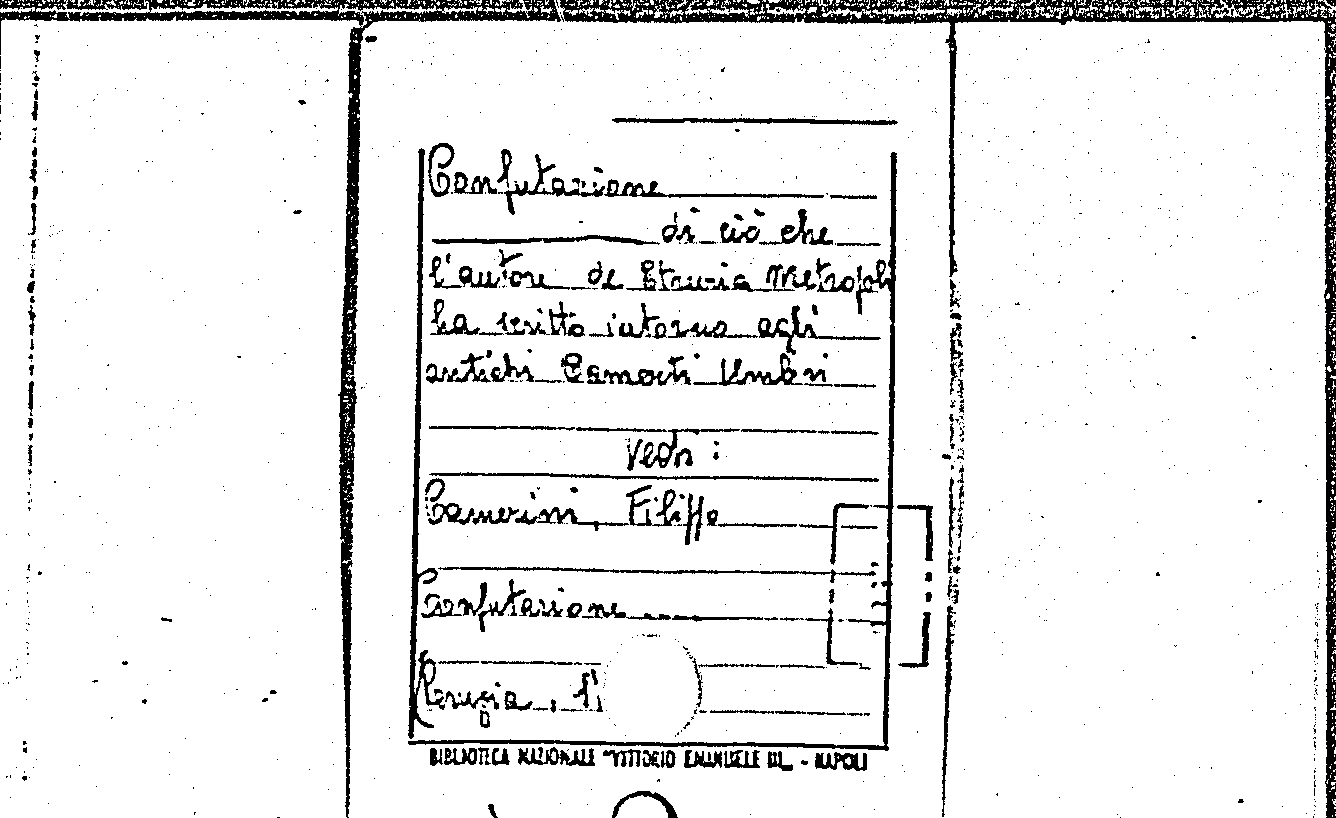 Confutazione
di ciò che
l'autore de Etruria Metropoli
ha scritto intorno agli
antichi Camerti Umbri
Vedi :
Camerini, Filippo
Confutazione ....
Perugia,
BIBLIOTECA NAZIONALE "VITTORIO EMANUELE III" - NAPOLI